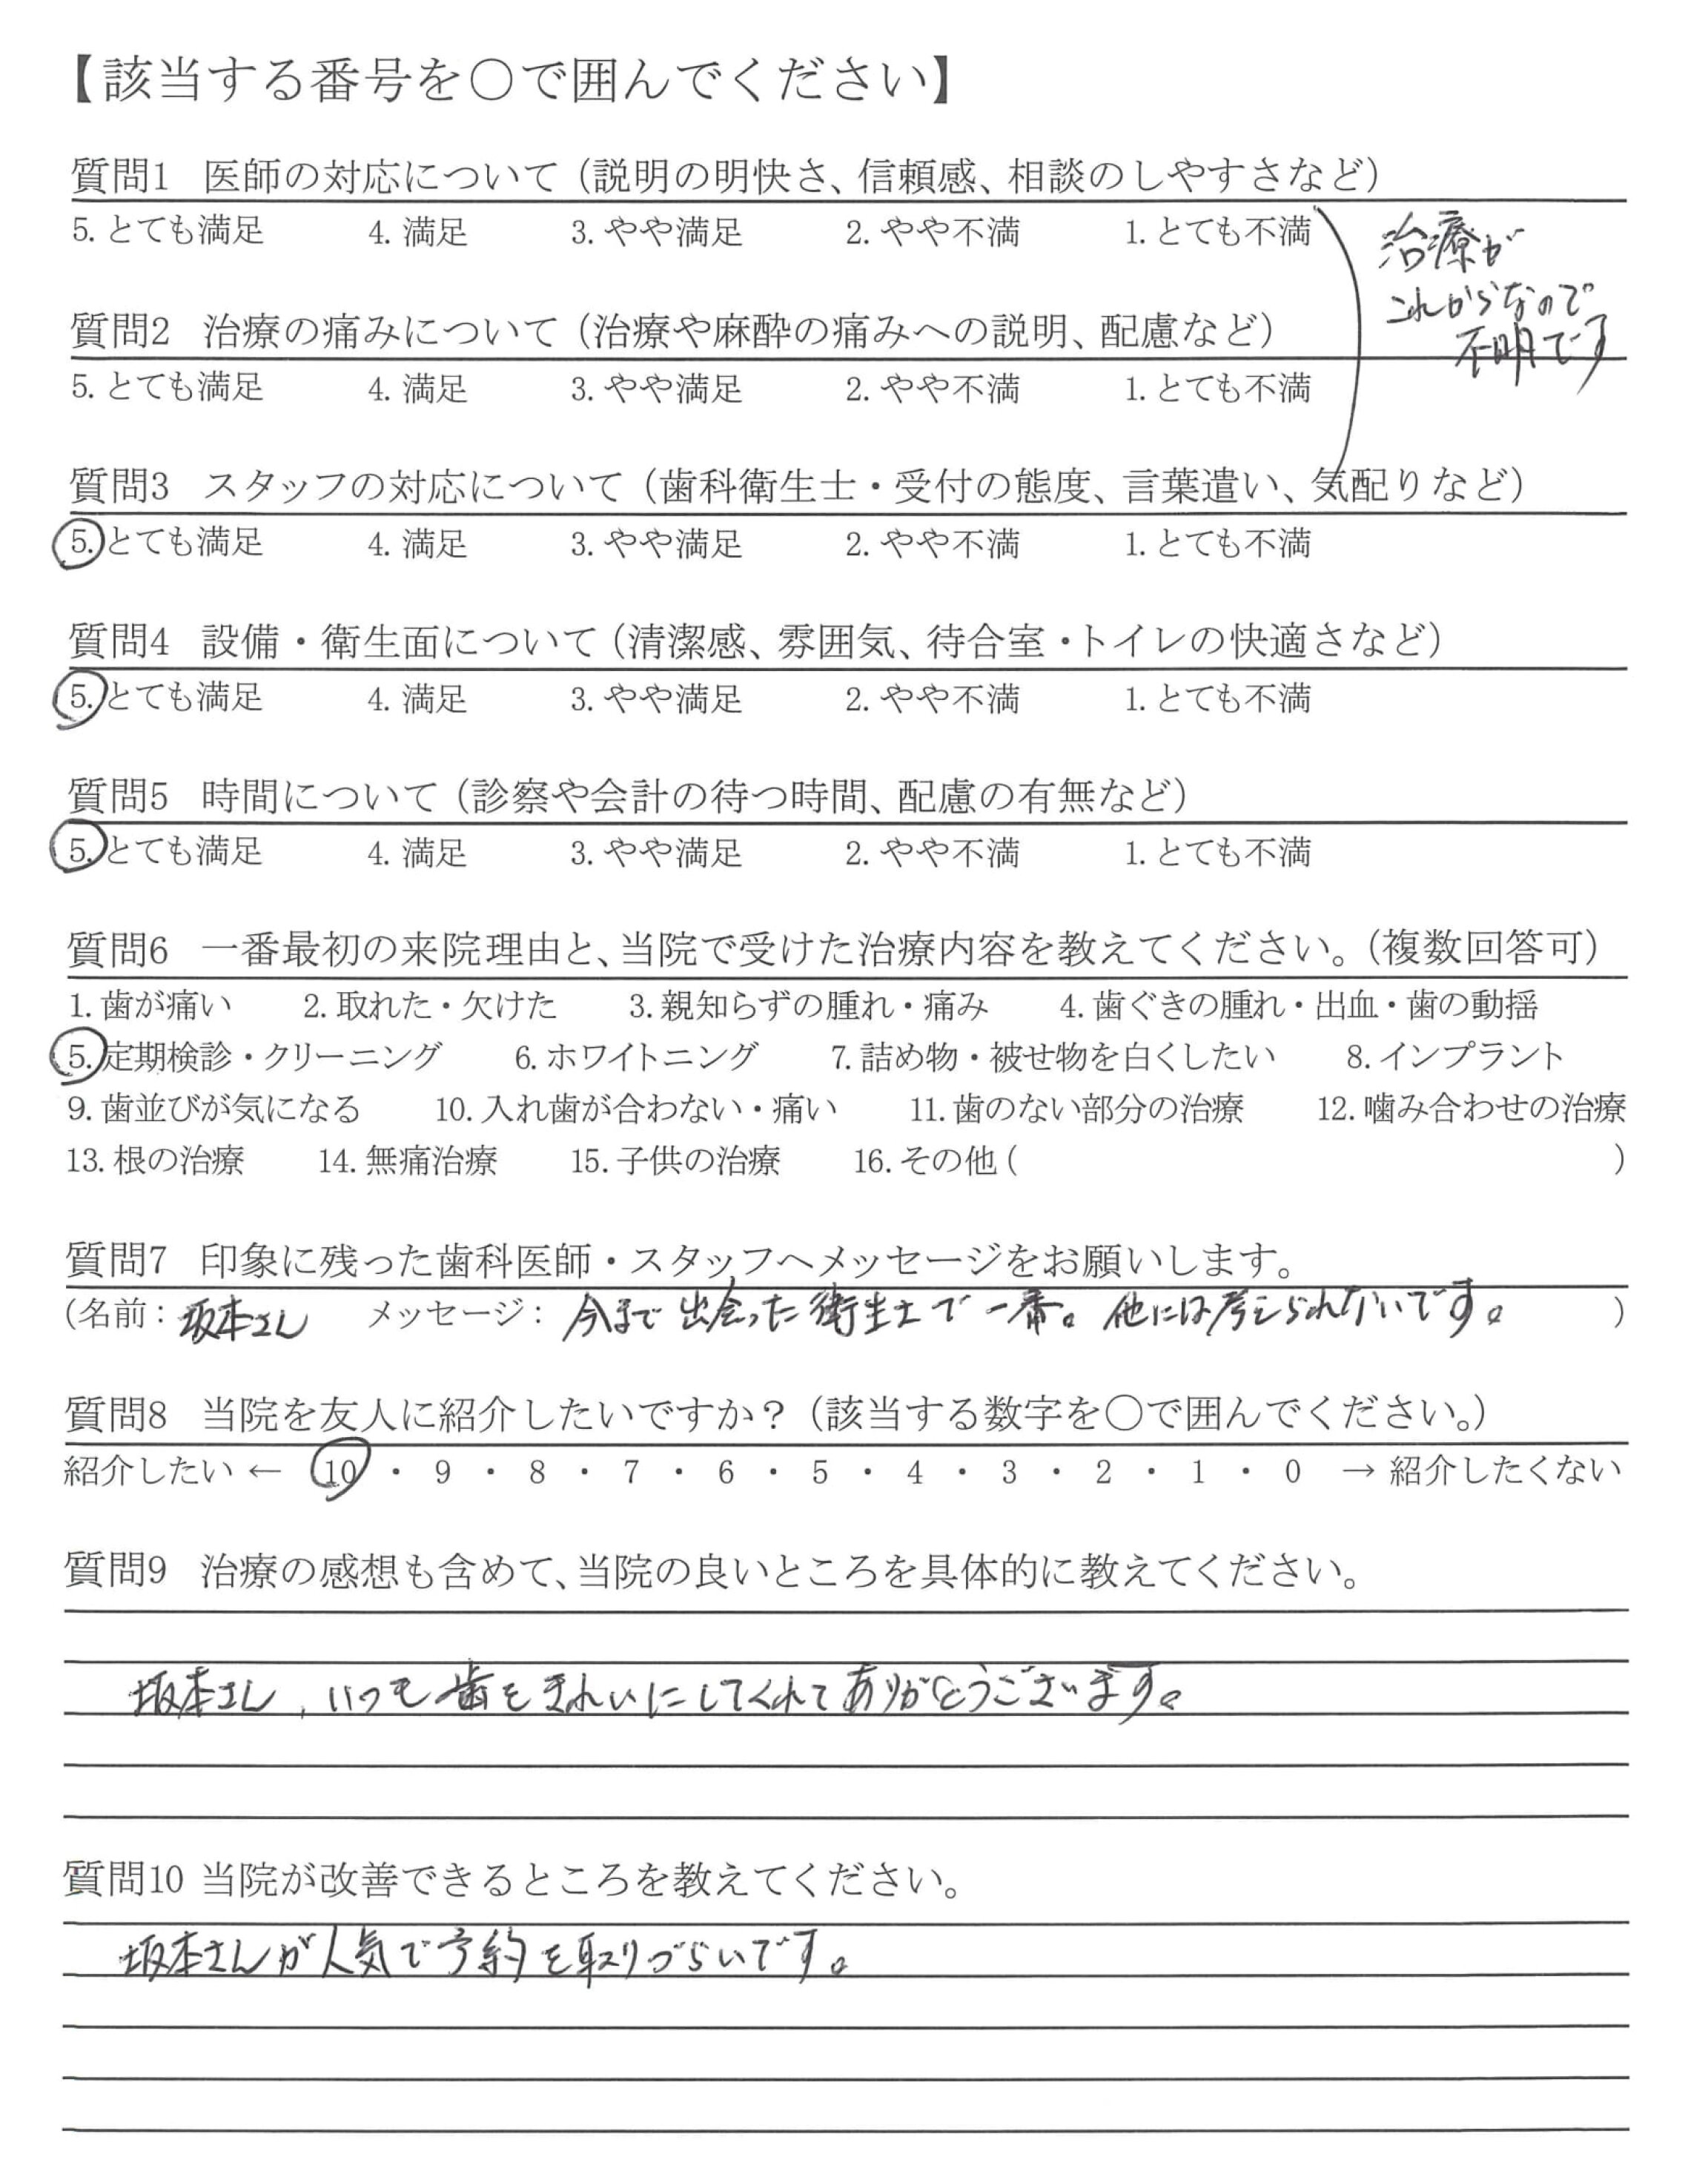 【該当する番号を○で囲んでください】
質問1 医師の対応について（説明の明快さ、信頼感、相談のしやすさなど）
5. とても満足 4. 満足 3. やや満足 2. やや不満 1. とても不満
治療が
これからなので
不明です
質問2 治療の痛みについて（治療や麻酔の痛みへの説明、配慮など）
5. とても満足 4. 満足 3. やや満足 2. やや不満 1. とても不満
質問3 スタッフの対応について（歯科衛生士・受付の態度、言葉遣い、気配りなど）
5. とても満足 4. 満足 3. やや満足 2. やや不満 1. とても不満
質問4 設備・衛生面について（清潔感、雰囲気、待合室・トイレの快適さなど）
5. とても満足 4. 満足 3. やや満足 2. やや不満 1. とても不満
質問5 時間について（診察や会計の待つ時間、配慮の有無など）
5. とても満足 4. 満足 3. やや満足 2. やや不満 1. とても不満
質問6 一番最初の来院理由と、当院で受けた治療内容を教えてください。（複数回答可）
1. 歯が痛い 2. 取れた・欠けた 3. 親知らずの腫れ・痛み 4. 歯ぐきの腫れ・出血・歯の動揺
5. 定期検診・クリーニング 6. ホワイトニング 7. 詰め物・被せ物を白くしたい 8. インプラント
9. 歯並びが気になる 10. 入れ歯が合わない・痛い 11. 歯のない部分の治療 12. 噛み合わせの治療
13. 根の治療 14. 無痛治療 15. 子供の治療 16. その他 ( )
質問7 印象に残った歯科医師・スタッフへメッセージをお願いします。
(名前：坂本さん メッセージ：今まで出会った衛生士で一番。他には考えられないです。 )
質問8 当院を友人に紹介したいですか？（該当する数字を○で囲んでください。）
紹介したい ← 10 ・ 9 ・ 8 ・ 7 ・ 6 ・ 5 ・ 4 ・ 3 ・ 2 ・ 1 ・ 0 → 紹介したくない
質問9 治療の感想も含めて、当院の良いところを具体的に教えてください。
坂本さん、いつも歯をきれいにしてくれてありがとうございます。
質問10 当院が改善できるところを教えてください。
坂本さんが人気で予約を取りづらいです。